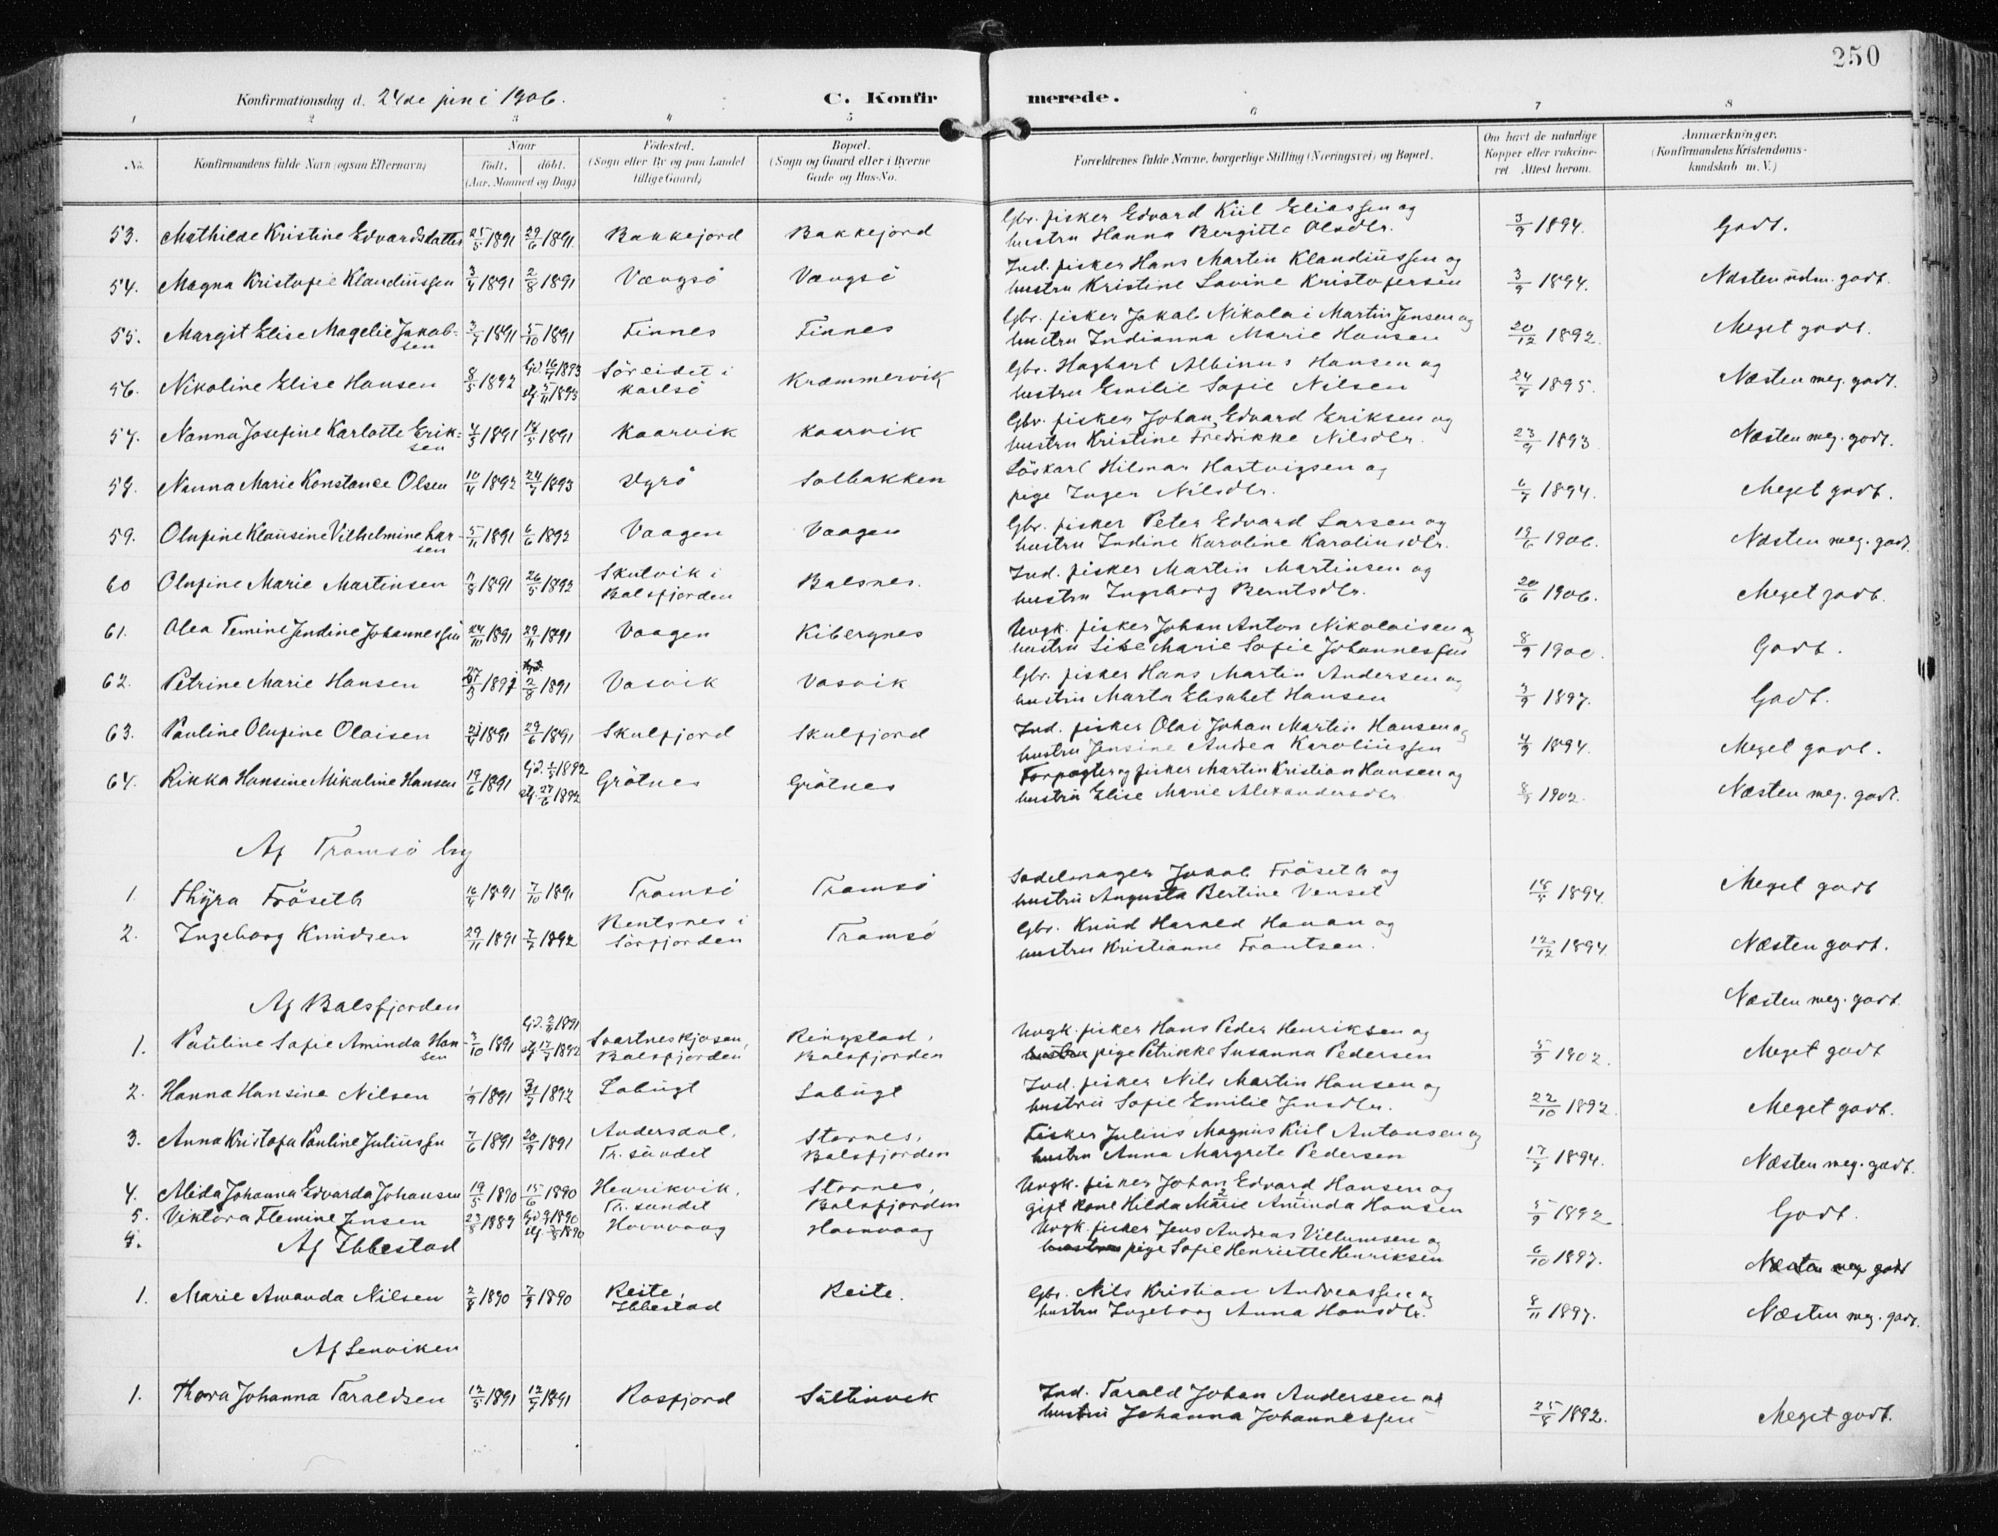 250
Konfirmationsdag d. 24de juni 1906.
C. Konfirmerede.
1 2 3 4 5 6 7 8
No. Konfirmandens fulde Navn (ogsaa Efternavn) Naar født. døbt. (Aar, Maaned og Dag) Fødested. (Sogn eller By og paa Landet tillige Gaard) Bopæl. (Sogn og Gaard eller i Byerne Gade og Hus-No. Forældrenes fulde Navne, borgerlige Stilling (Næringsvei) og Bopæl. Om havt de naturlige Kopper eller vakcineret. Attest herom. Anmærkninger. (Konfirmandens Kristendomskundskab m. V.)
53. Mathilde Kristine Edvardsdatter 25/5 1891 29/6 1891 Bakkejord Bakkejord Gbr. fisker Edvard Kiil Eliassen og hustru Hanna Bergitte Olsdtr. 3/9 1894. Godt.
54. Magna Kristofie Klaudiussen 3/4 1891 2/8 1891 Vængsö Vængsö Ind. fisker Hans Martin Klaudiussen og hustru Kristine Lovine Kristofersen 3/9 1894. Næsten udm. godt.
55. Margit Elise Magelie Jakobsen 3/7 1891 5/10 1891 Finnes Finnes Gbr. fisker Jakob Nikolai Martin Jensen og hustru Indianna Marie Hansen 20/12 1892. Meget godt.
56. Nikoline Elise Hansen 8/5 1892 Gd. 16/7 1893 stf. 5/11 1893 Söreidet i Karlsö Kræmmervik Gbr. Hagbart Albinus Hansen og hustru Emilie Sofie Nilsen 24/7 1895. Næsten meg. godt.
57. Nanna Josefine Karlotte Eriksen 4/3 1891 18/5 1891 Kaarvik Kaarvik Gbr. fisker Johan Edvard Eriksen og hustru Kristine Fredrikke Nilsdtr. 23/9 1893 Næsten meg. godt.
58. Nanna Marie Konstance Olsen 10/4 1892 24/7 1893 Solbakken Löskarl Hilmar Hartvigsen og pige Inger Nilsdtr. 6/7 1894. Meget godt.
59. Olufine Klausine Vilhelmine Larsen 5/11 1891 6/6 1892 Vaagen Vaagen Gbr. fisker Peter Edvard Larsen og hustru Indine Karoline Karolinusdtr. 19/6 1906. Næsten meg. godt.
60 Olufine Marie Martinsen 7/8 1891 26/5 1892 Skutvik i Balsfjorden Balsnes. Ind. fisker Martin Martinsen og hustru Ingeborg Berntsdtr. 20/6 1906. Meget godt.
61. Olea Temine Jendine Johannessen 24/10 1891 29/11 1891 Vaagen Kibergnes Ungk. fisker Johan Anton Nikolaisen og hustru Lise Marie Sofie Johannessen 8/9 1900. Godt.
62. Petrine Marie Hansen 27/3 1891 2/8 1891 Vasvik Vasvik Gbr. fisker Hans Martin Andersen og hustru Marta Elisabet Hansen 3/9 1897. Godt.
63. Pauline Olufine Olaisen 21/4 1891 29/6 1891 Skulfjord Skulfjord Ind. fisker Olai Johan Martin Hansen og hustru Jensine Andrea Karoliussen 4/9 1894. Meget godt.
64. Rikka Hansine Nikoline Hansen 19/6 1891 Gd. 1/5 1892 stf. 27/6 1892 Grötnes Grötnes Forpagter og fisker Martin Kristian Hansen og hustru Elise Marie Alexandersdtr. 8/9 1902. Næsten meg. godt.
Af Tromsö by
1. Thyra Fröseth 16/4 1891 7/10 1891 Tromsö Tromsö Sadelmager Jakob Fröseth og hustru Augusta Bertine Venset 18/5 1894. Meget godt
2. Ingeborg Knudsen 29/11 1891 7/7 1892 Rentsnes i Sörfjorden Tromsö Gbr. Knud Harald Hanan og hustru Kristianne Frantsen. 12/12 1894. Næsten godt.
Af Balsfjorden Næsten meg. godt.
1. Pauline Sofie Aminda Hansen 3/10 1891 Gd. 3/11 1891 stf. 17/7 1892 Svartneskjosen, Balsfjorden Ringstad, Balsfjorden Ungk. fisker Hans Peder Henriksen og hustru pige Petrikke Susanna Pedersen 5/9 1902. Meget godt
2. Hanna Hansine Nilsen 1/9 1891 31/7 1892 Labugt Labugt Ind. fisker Nils Martin Hansen og hustru Sofie Emilie Jensdtr. 22/10 1892. Meget godt.
3. Anna Kristofa Pauline Juliussen 7/6 1891 20/9 1891 Andersdal, Tr. sundet Stornes, Balsfjorden Fisker Julius Magnus Kiil Antonsen og hustru Anna Margrete Pedersen 17/7 1894. Næsten meg. godt.
4. Alida Johanna Edvarda Johansen 19/5 1890 15/6 1890 Henrikvik, Tr. sundet Stornes, Balsfjorden Ungk. fisker Johan Edvard Hansen og gift kone Hilda Marie Aminda Hansen 5/9 1892 Godt.
5. Viktora Flemine Jensen 23/8 1889 Havnvaag Havnvaag Ungk. fisker Jens Andreas Villumsen og hustru pige Sofie Henriette Henriksen 6/10 1897. Næsten meg godt
Af Ibbestad
1. Marie Amanda Nilsen 2/8 1890 7/9 1890 Reite, Ibbestad Reite. Gbr. Nils Kristian Andreassen og hustru Ingeborg Anna Hansdtr. 8/11 1897. Næsten meg. godt.
Af Lenviken
1. Thora Johanna Taraldsen 12/5 1891 12/7 1891 Rosfjord Sultinvik Ind. Tarald Johan Andersen og hustru Johanna Johannessen 25/8 1892. Meget godt.